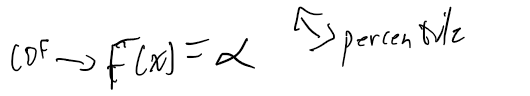 CDF → F(x) = α
↳ percentile